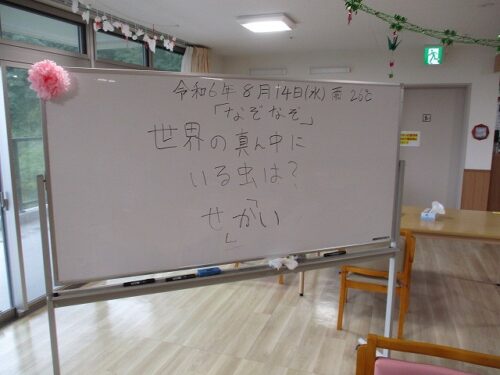 令和6年8月14日(水) 雨 26℃
「なぞなぞ」
世界の真ん中に
いる虫は?
せ「が」い